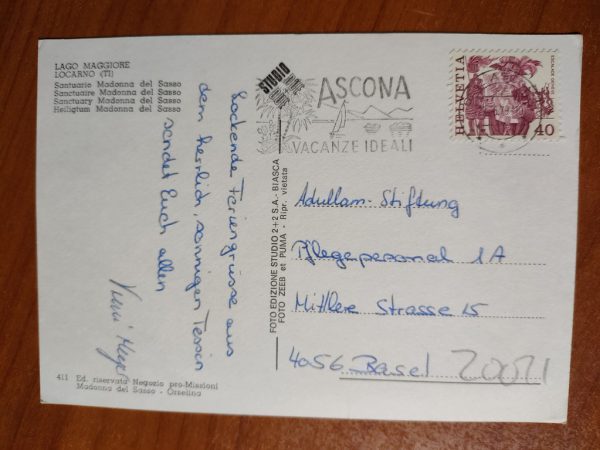 LAGO MAGGIORE
LOCARNO (TI)
Santuario Madonna del Sasso
Sanctuaire Madonna del Sasso
Sanctuary Madonna del Sasso
Heiligtum Madonna del Sasso
Lockende Feriengrüsse aus
dem herrlich, sonnigen Tessin
sendet Euch allen
411 Ed. riservata Negozio pro-Missioni
Madonna del Sasso - Orselina
FOTO EDIZIONE STUDIO 2+2 S.A. - BIASCA
FOTO ZEEB et PUMA - Ripr. vietata
STUDIO
ASCONA
VACANZE IDEALI
HELVETIA
40
Adullam-Stiftung
Pflegepersonal 1A
Mittlere Strasse 15
4056 Basel